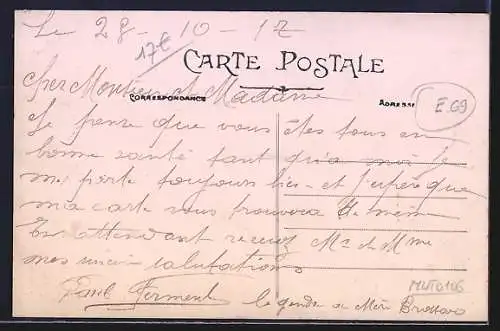 Le 28 - 10 - 17
17€
CARTE POSTALE
Cher Monsieur et Madame
CORRESPONDANCE
ADRESSE
E 69
Je pense que vous êtes tous en
bonne santé tant qu'a moi je
me porte toujours bien et j'espère que
ma carte vous trouvera de meme
En attendant recevez Mr et Mme
mes salutations
Paul